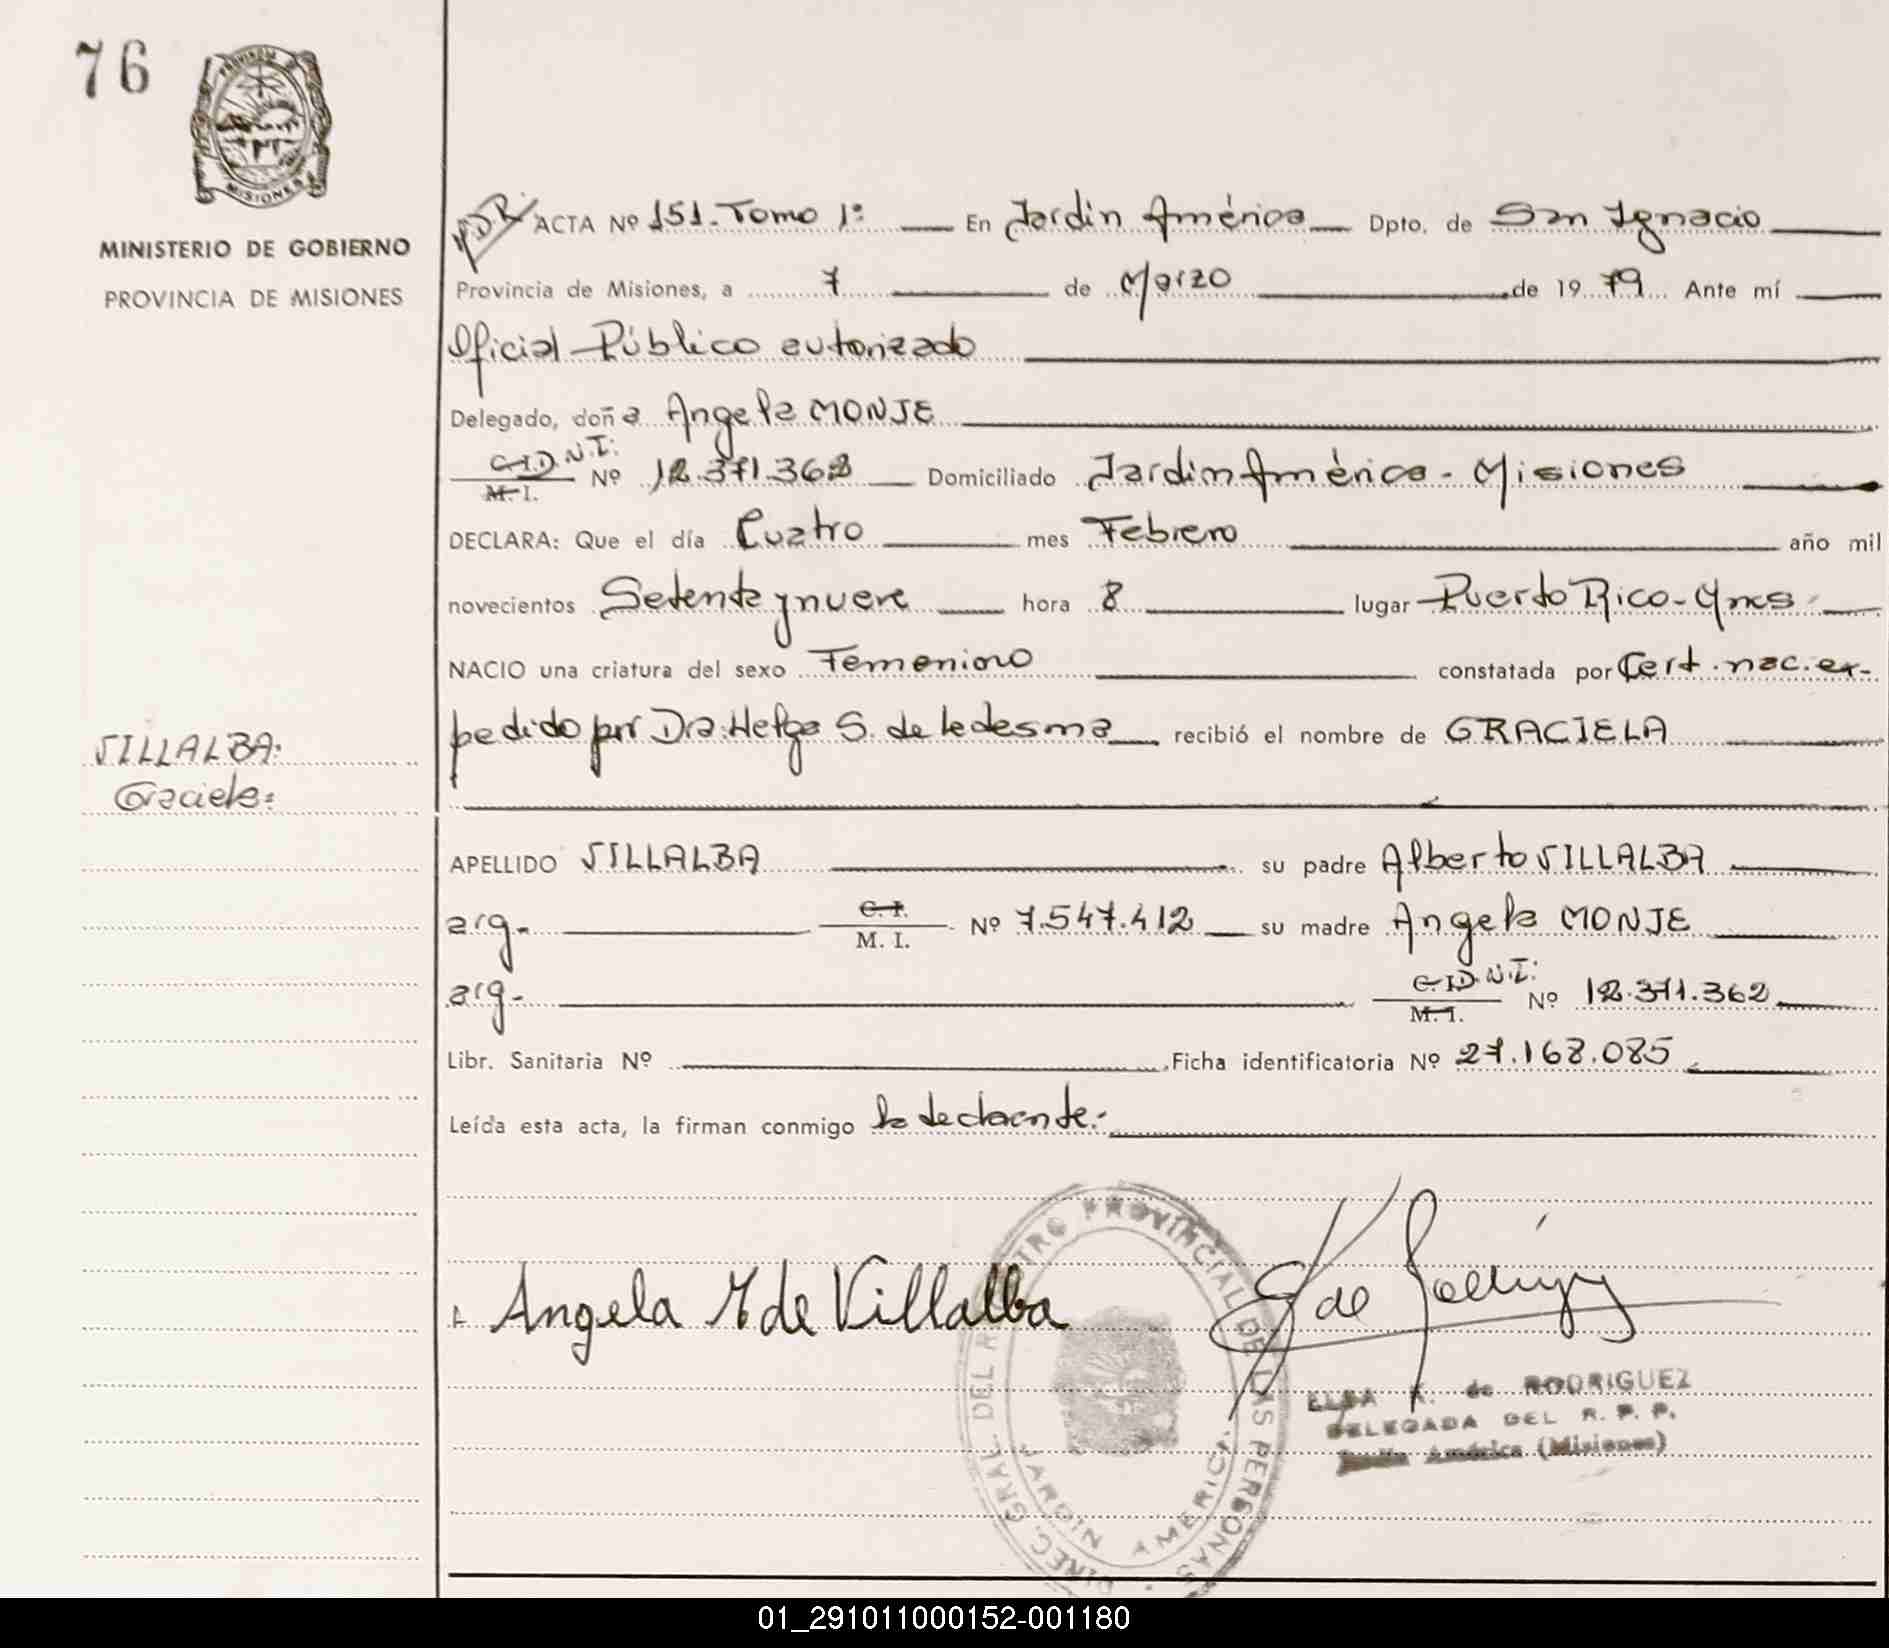 76
PROVINCIA DE MISIONES
MINISTERIO DE GOBIERNO
PROVINCIA DE MISIONES
VILLALBA:
Graciela:
ACTA Nº 151. Tomo 1º En Jardín América Dpto. de San Ignacio
Provincia de Misiones, a 7 de Marzo de 1979 Ante mí
Oficial Público autorizado
Delegado, doña Angela MONJE
C.I. D.N.I: M.I. Nº 12.371.362 Domiciliado Jardín América - Misiones
DECLARA: Que el día Cuatro mes Febrero año mil
novecientos Setenta y nueve hora 8 lugar Puerto Rico - Mnes
NACIO una criatura del sexo Femenino constatada por Cert. nac. ex-
pedido por Dra. Helga S. de Ledesma recibió el nombre de GRACIELA
APELLIDO VILLALBA su padre Alberto VILLALBA
arg. C.I. M.I. Nº 7.547.412 su madre Angela MONJE
arg. C.I. D.N.I: M.I. Nº 12.371.362
Libr. Sanitaria Nº Ficha identificatoria Nº 27.168.085
Leída esta acta, la firman conmigo la declarante:
Angela M de Villalba
DIREC. GRAL. DEL REGISTRO PROVINCIAL DE LAS PERSONAS
JARDIN AMERICA
ELBA K. de RODRIGUEZ
DELEGADA DEL R. P. P.
Jardín América (Misiones)
01_291011000152-001180